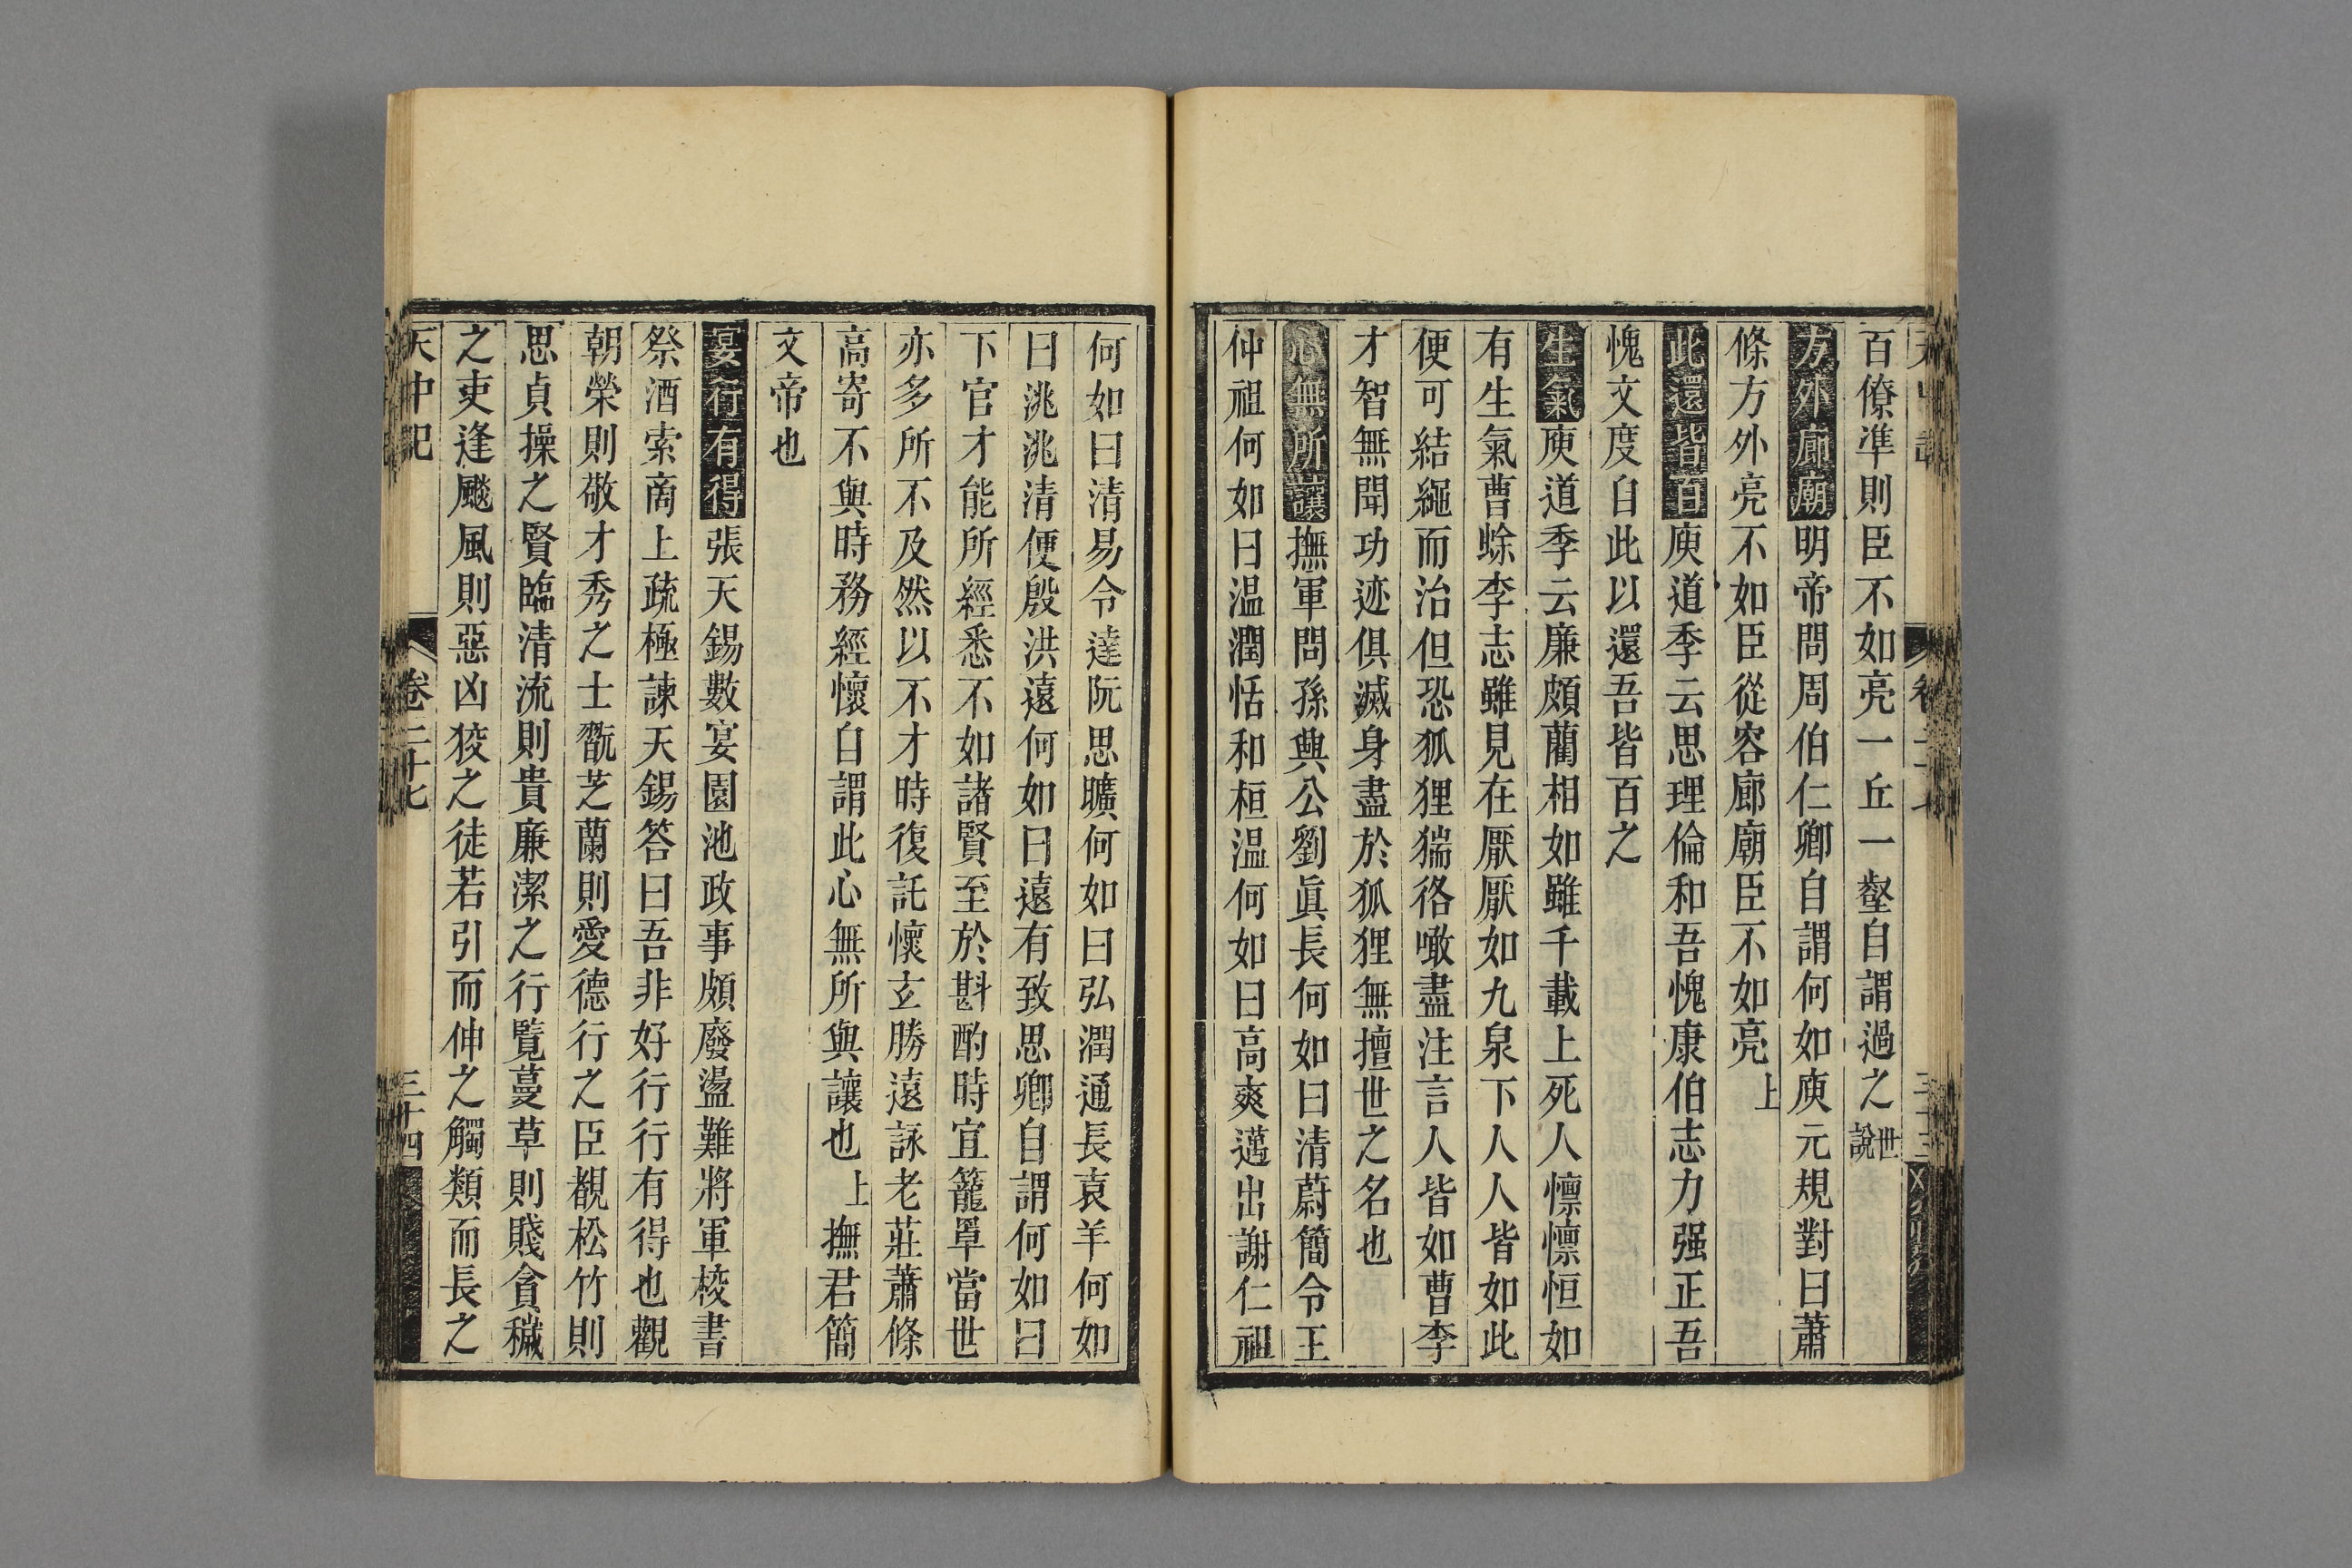 百僚準則臣不如亮一丘一壑自謂過之世說
方外廊廟明帝問周伯仁卿自謂何如庾元規對曰蕭
條方外亮不如臣從容廊廟臣不如亮上
此還皆百庾道季云思理倫和吾愧康伯志力强正吾
愧文度自此以還吾皆百之
生氣庾道季云廉頗藺相如雖千載上死人懔懔恒如
有生氣曹蜍李志雖見在厭厭如九泉下人人皆如此
便可結繩而治但恐狐狸猯狢噉盡注言人皆如曹李
才智無聞功迹俱滅身盡於狐狸無擅世之名也
心無所讓撫軍問孫興公劉眞長何如曰清蔚簡令王
仲祖何如曰温潤恬和桓温何如曰高爽邁出謝仁祖
何如曰清易令達阮思曠何如曰弘潤通長袁羊何如
曰洮洮清便殷洪遠何如曰遠有致思卿自謂何如曰
下官才能所經悉不如諸賢至於斟酌時宜籠罩當世
亦多所不及然以不才時復託懷玄勝遠詠老莊蕭條
高寄不與時務經懷自謂此心無所與讓也上撫君簡
文帝也
宴行有得張天錫數宴園池政事頗廢盪難將軍校書
祭酒索商上疏極諫天錫答曰吾非好行行有得也觀
朝榮則敬才秀之士翫芝蘭則愛德行之臣覩松竹則
思貞操之賢臨清流則貴廉潔之行覧蔓草則賤貪穢
之吏逢飇風則惡凶狡之徒若引而伸之觸類而長之
天中記 卷二十七 三十四